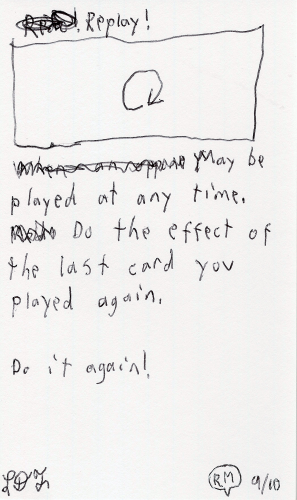 Replay!
May be
played at any time.
Do the effect of
the last card you
played again.
Do it again!
RM 9/10